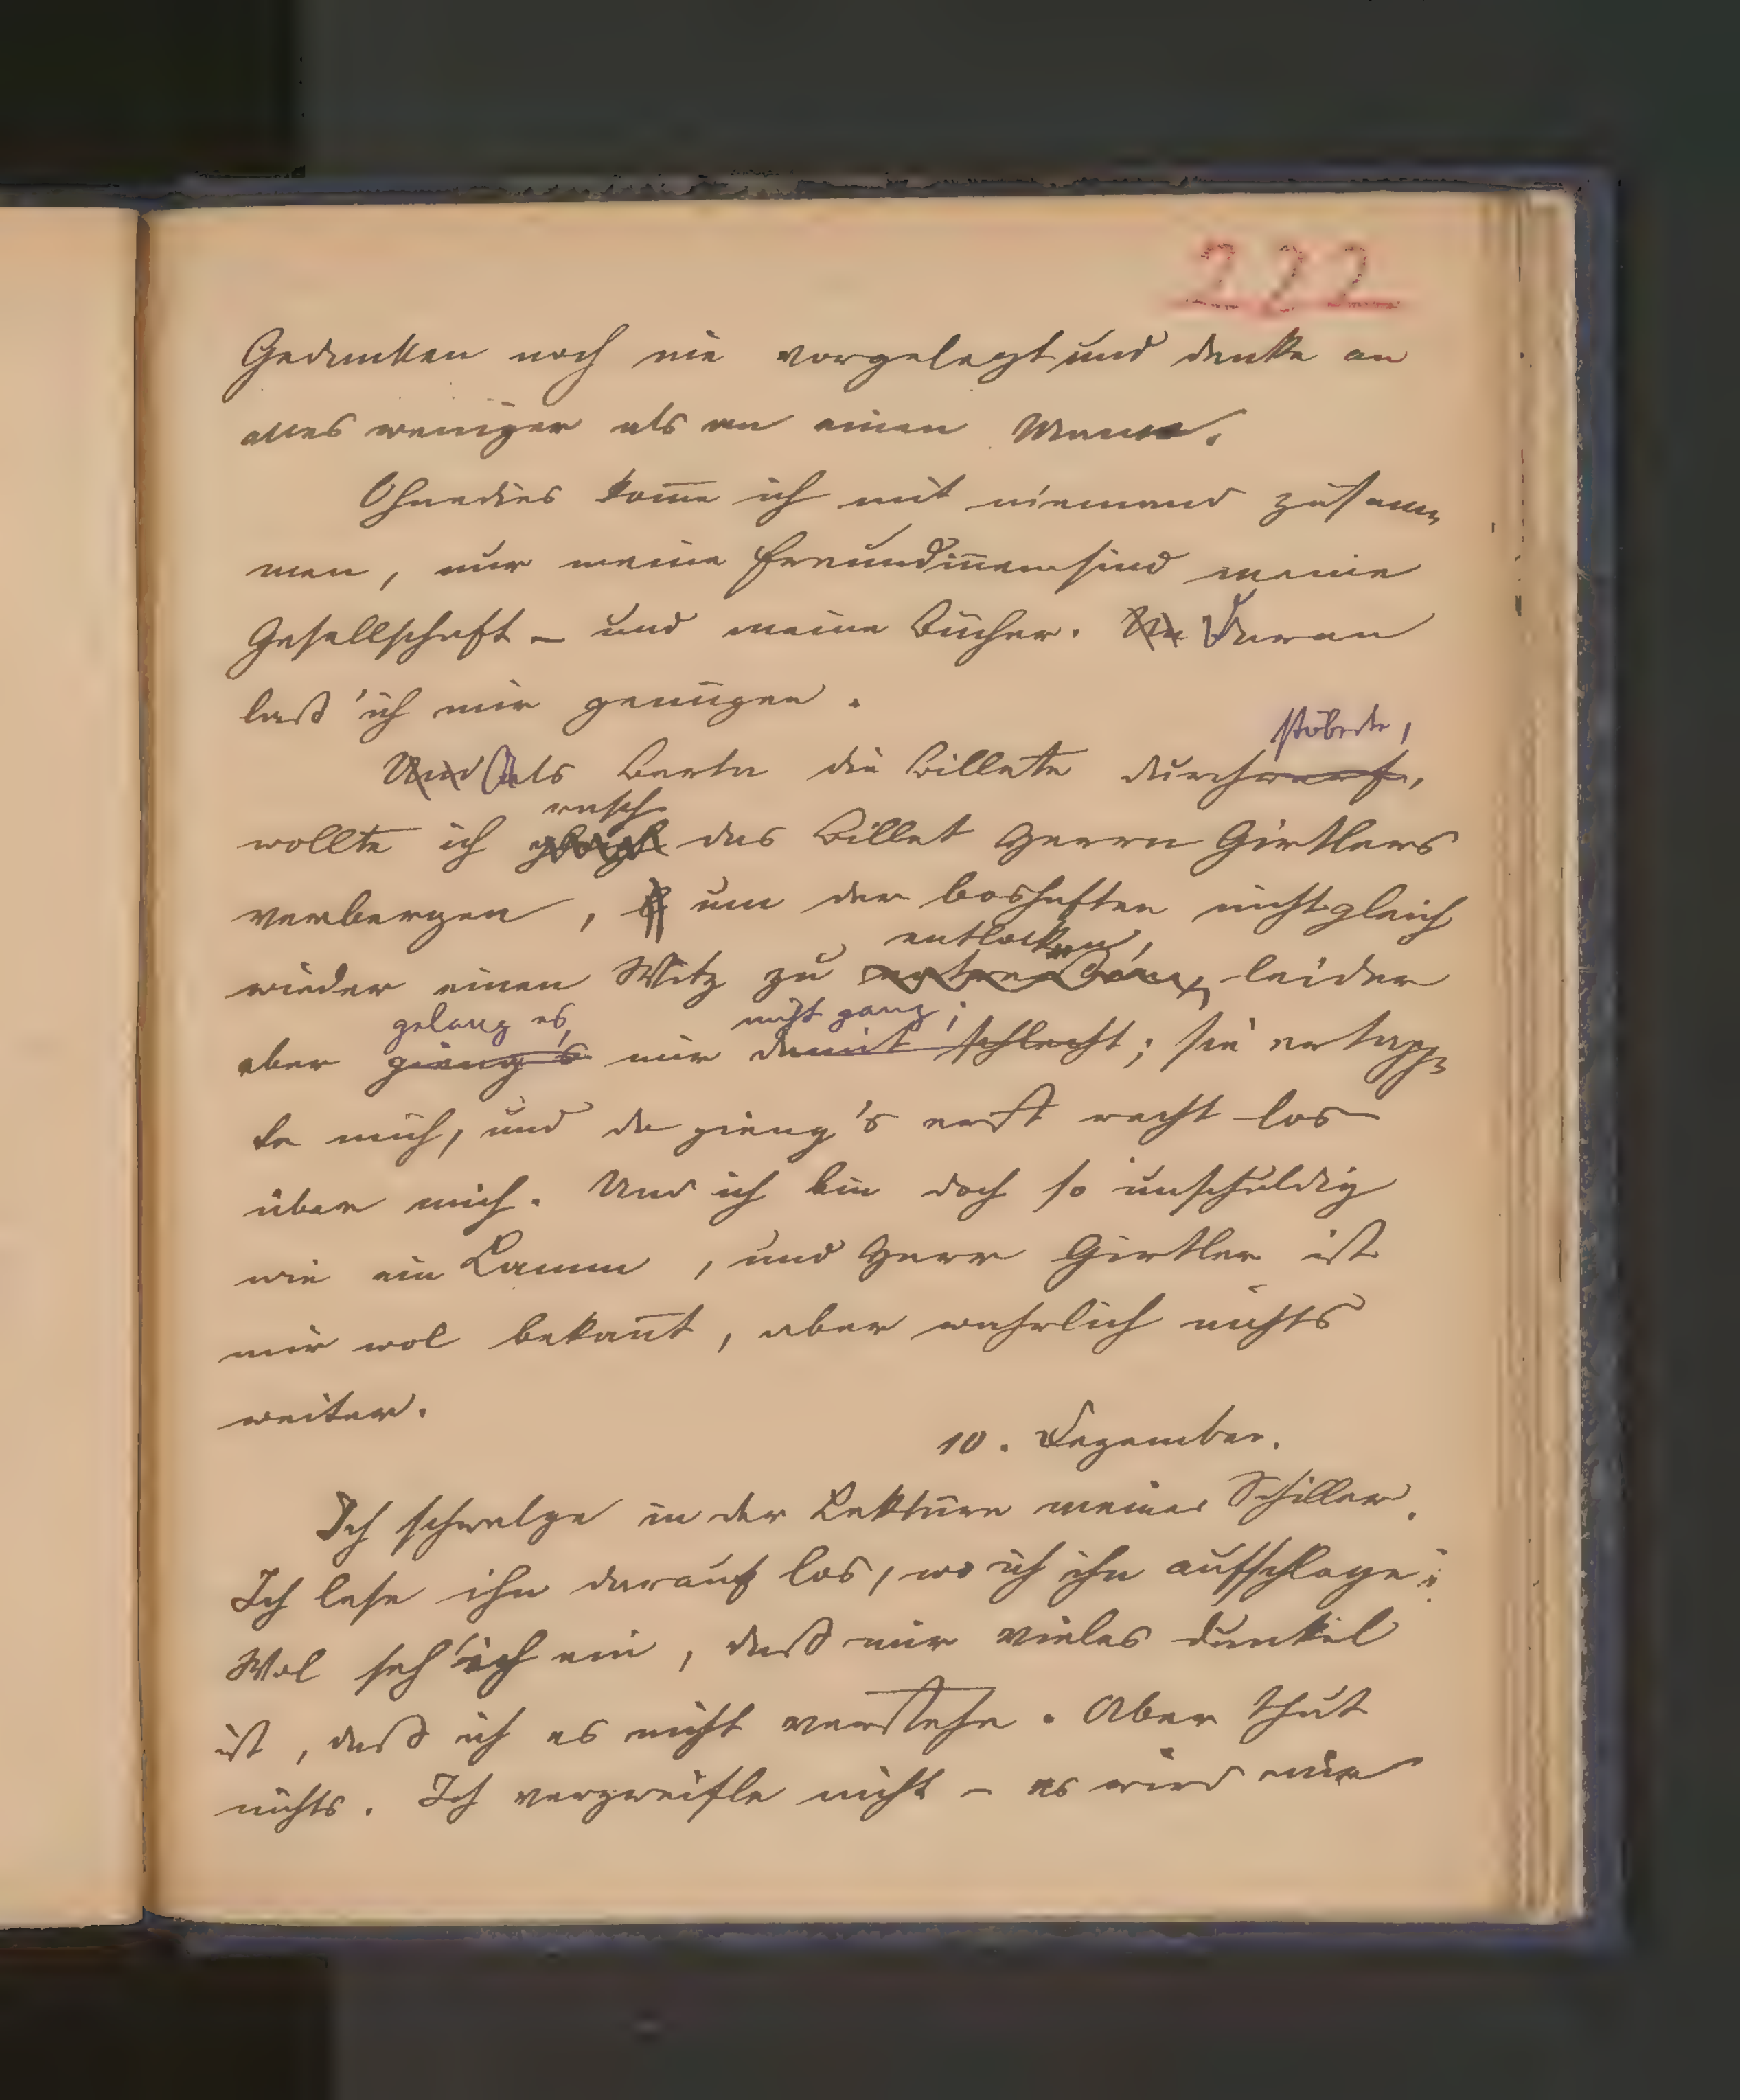 222
Gedanken noch nie vorgelegt und denke an
alles weniger als an einen Mann.
Ohnedies kom̅e ich mit niemand zusam-
men, nur meine Freundin̅en sind meine
Gesellschaft – und meine Bücher. Daran
laß' ich mir genügen.
stöberte,
Und Als Berta die Billete durchwarf,
rasch
wollte ich gleich das Billet Herrn Girtlers
verbergen, um der boshaften nicht gleich
entlocken,
wieder einen Witz zu leider
gelang es nicht ganz;
aber gieng's mir damit schlecht; sie ertapp-
te mich, und da gieng's erst recht los
über mich. Und ich bin doch so unschuldig
wie ein Lamm, und Herr Girtler ist
mir wol bekan̅t, aber wahrlich nichts
weiter.
10. Dezember.
Ich schwelge in der Lektüre meines Schiller.
Ich lese ihn darauf los, wo ich ihn aufschlage;
Wol seh' ich ein, daß mir vieles dunkel
ist, daß ich es nicht verstehe. Aber thut
nichts. Ich verzweifle nicht – es wird mir